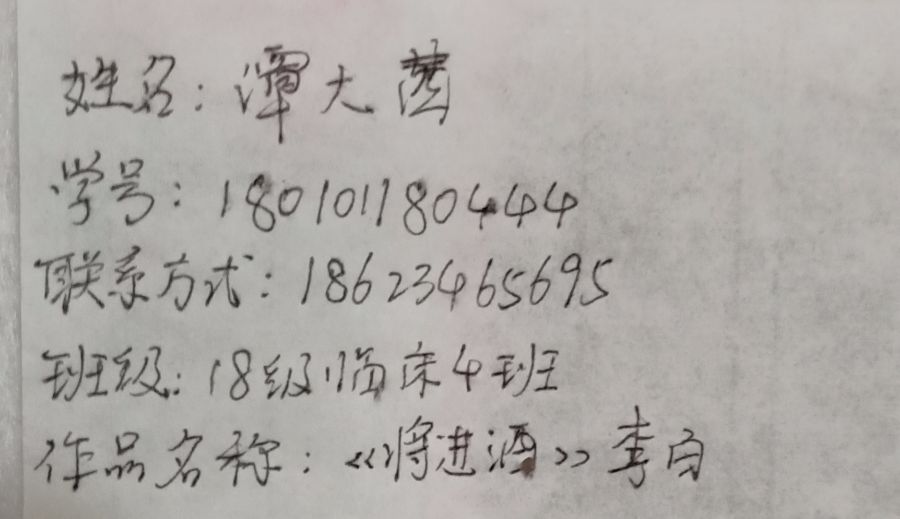 姓名：谭大茵
学号：180101180444
联系方式：18623465695
班级：18级临床4班
作品名称：《将进酒》李白